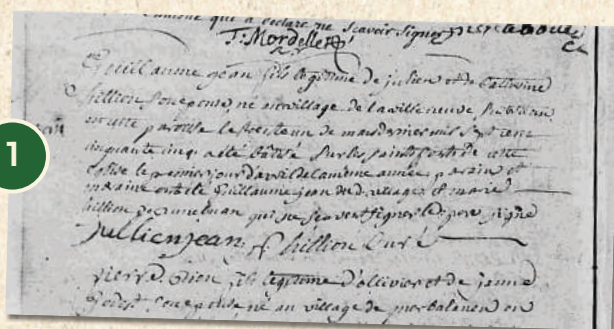 qui a déclaré ne scavoir signer
T: Mordellet
1
Guillaume jean fils legitime de julien et de Catherine
hillion son epouse, ne au village de la ville neuve
en cette paroisse le trente un de mars mil sept cent
cinquante cinq a été batisé sur les saints fonts de cette
eglise le premier jour d'avril de la meme année, parain et
maraine ont été Guillaume jean du d. village et marie
hillion qui ne scavent signer le pere signe
jullien jean hillion Curé
pierre fils legitime d'ollivier et de janne
son epouse, né au village de en